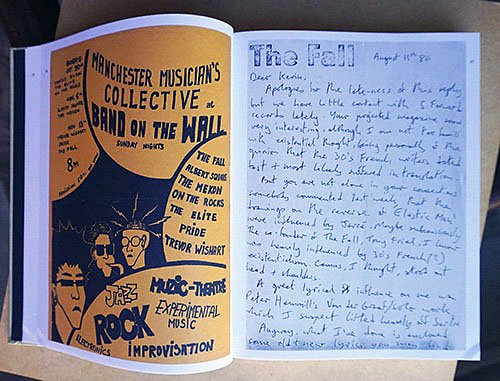 SUNDAYS
OCT. 30TH
ON THE ROCKS
NOV. 6TH
ALBERT SQUARE
THE MEKON
NOV. 13TH
TREVOR WISHART
PRIDE
THE FALL
8PM
MANCHESTER MUSICIAN'S
COLLECTIVE at
BAND ON THE WALL
SUNDAY NIGHTS
THE FALL
ALBERT SQUARE
THE MEKON
ON THE ROCKS
THE ELITE
PRIDE
TREVOR WISHART
MUZIC-THEATRE
JAZZ
EXPERIMENTAL
MUSIC
ROCK
ELECTRONICS
IMPROVISATION
The Fall
August 11th 80
Dear Kevin,
Apologies for the lateness of this reply
but we have little contact with S. Forward
records lately. Your projected magazine sounds
very interesting, although I am not too familiar
with existential thought, being personally of the
opinion that the 30's French writers dated
fast or most likely suffered in translation.
But you are not alone in your connections
somebody commented last week that the
drawings on the reverse of 'Elastic Man'
were influenced by Jarré. Maybe subconsciously
the co-founder of The Fall, Tony Friel, I know
was heavily influenced by 30s French(?)
existentialism. Camus, I thought, stood out
head & shoulders.
A great lyrical influence on me was
Peter Hammill's Van der Graaf/solo works
which I suspect lifted heavily off Sartre
Anyway, what I've done is enclosed
some old & new lyrics you may